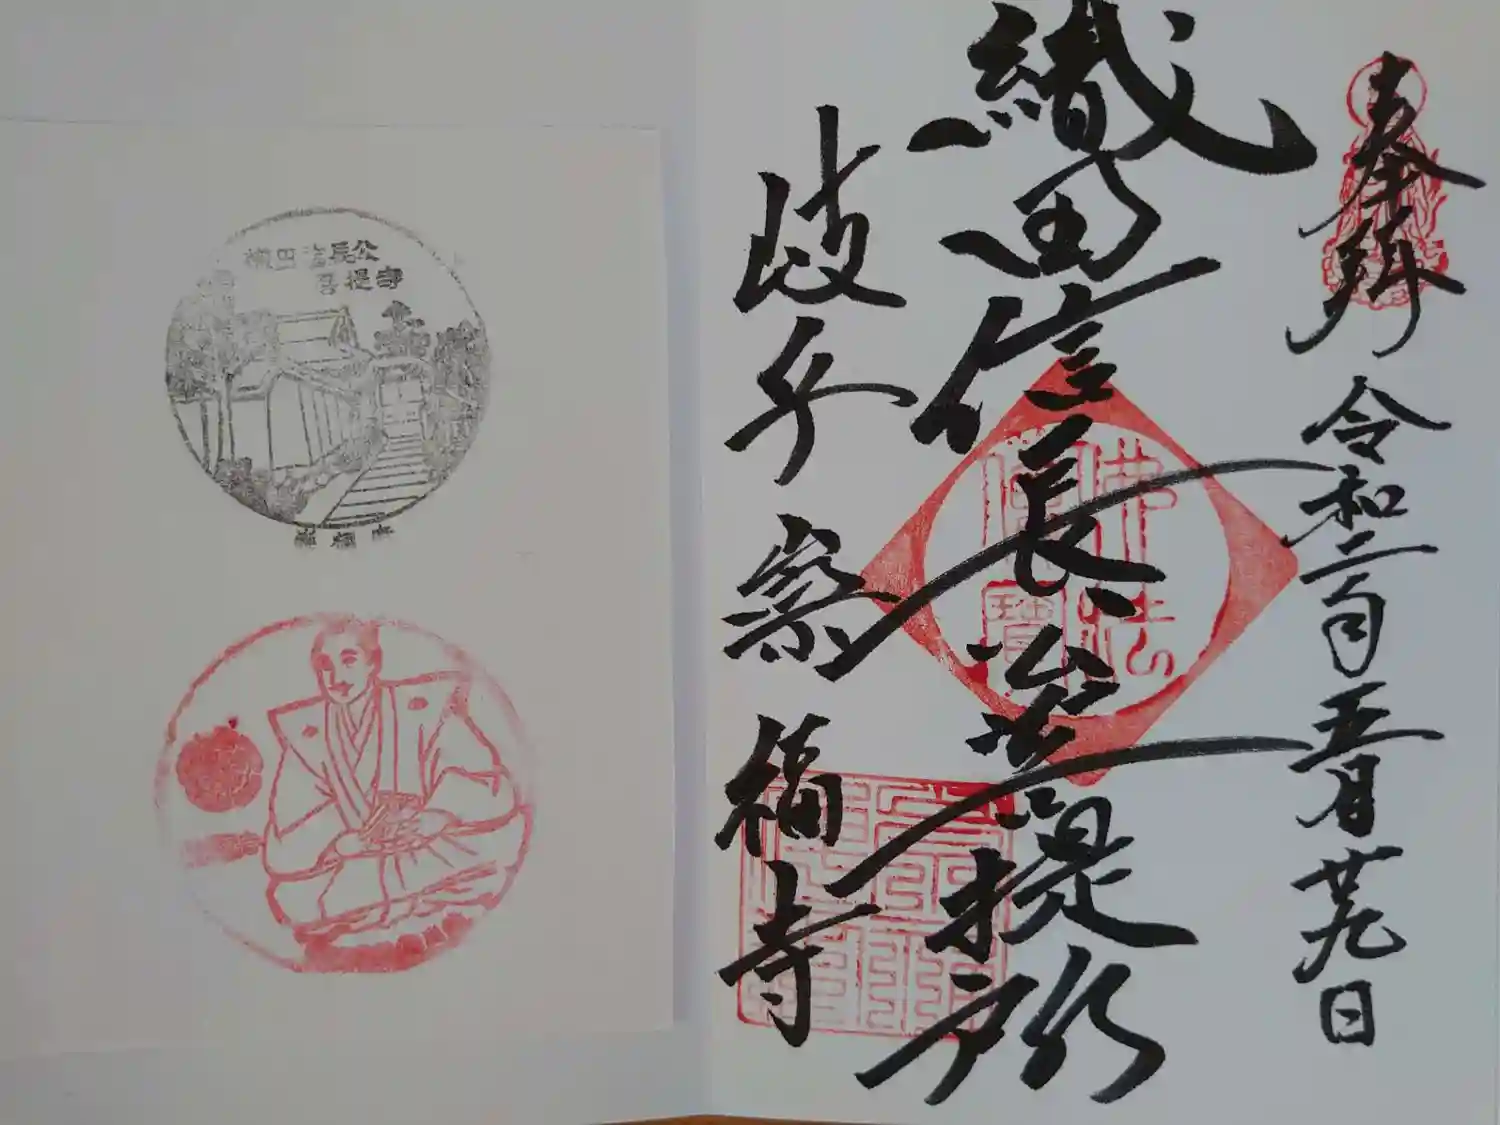 奉拝 令和二年五月廿九日
織田信長公菩提所
岐阜 崇福寺
佛法
僧寶
織田信長公
菩提寺
崇福寺